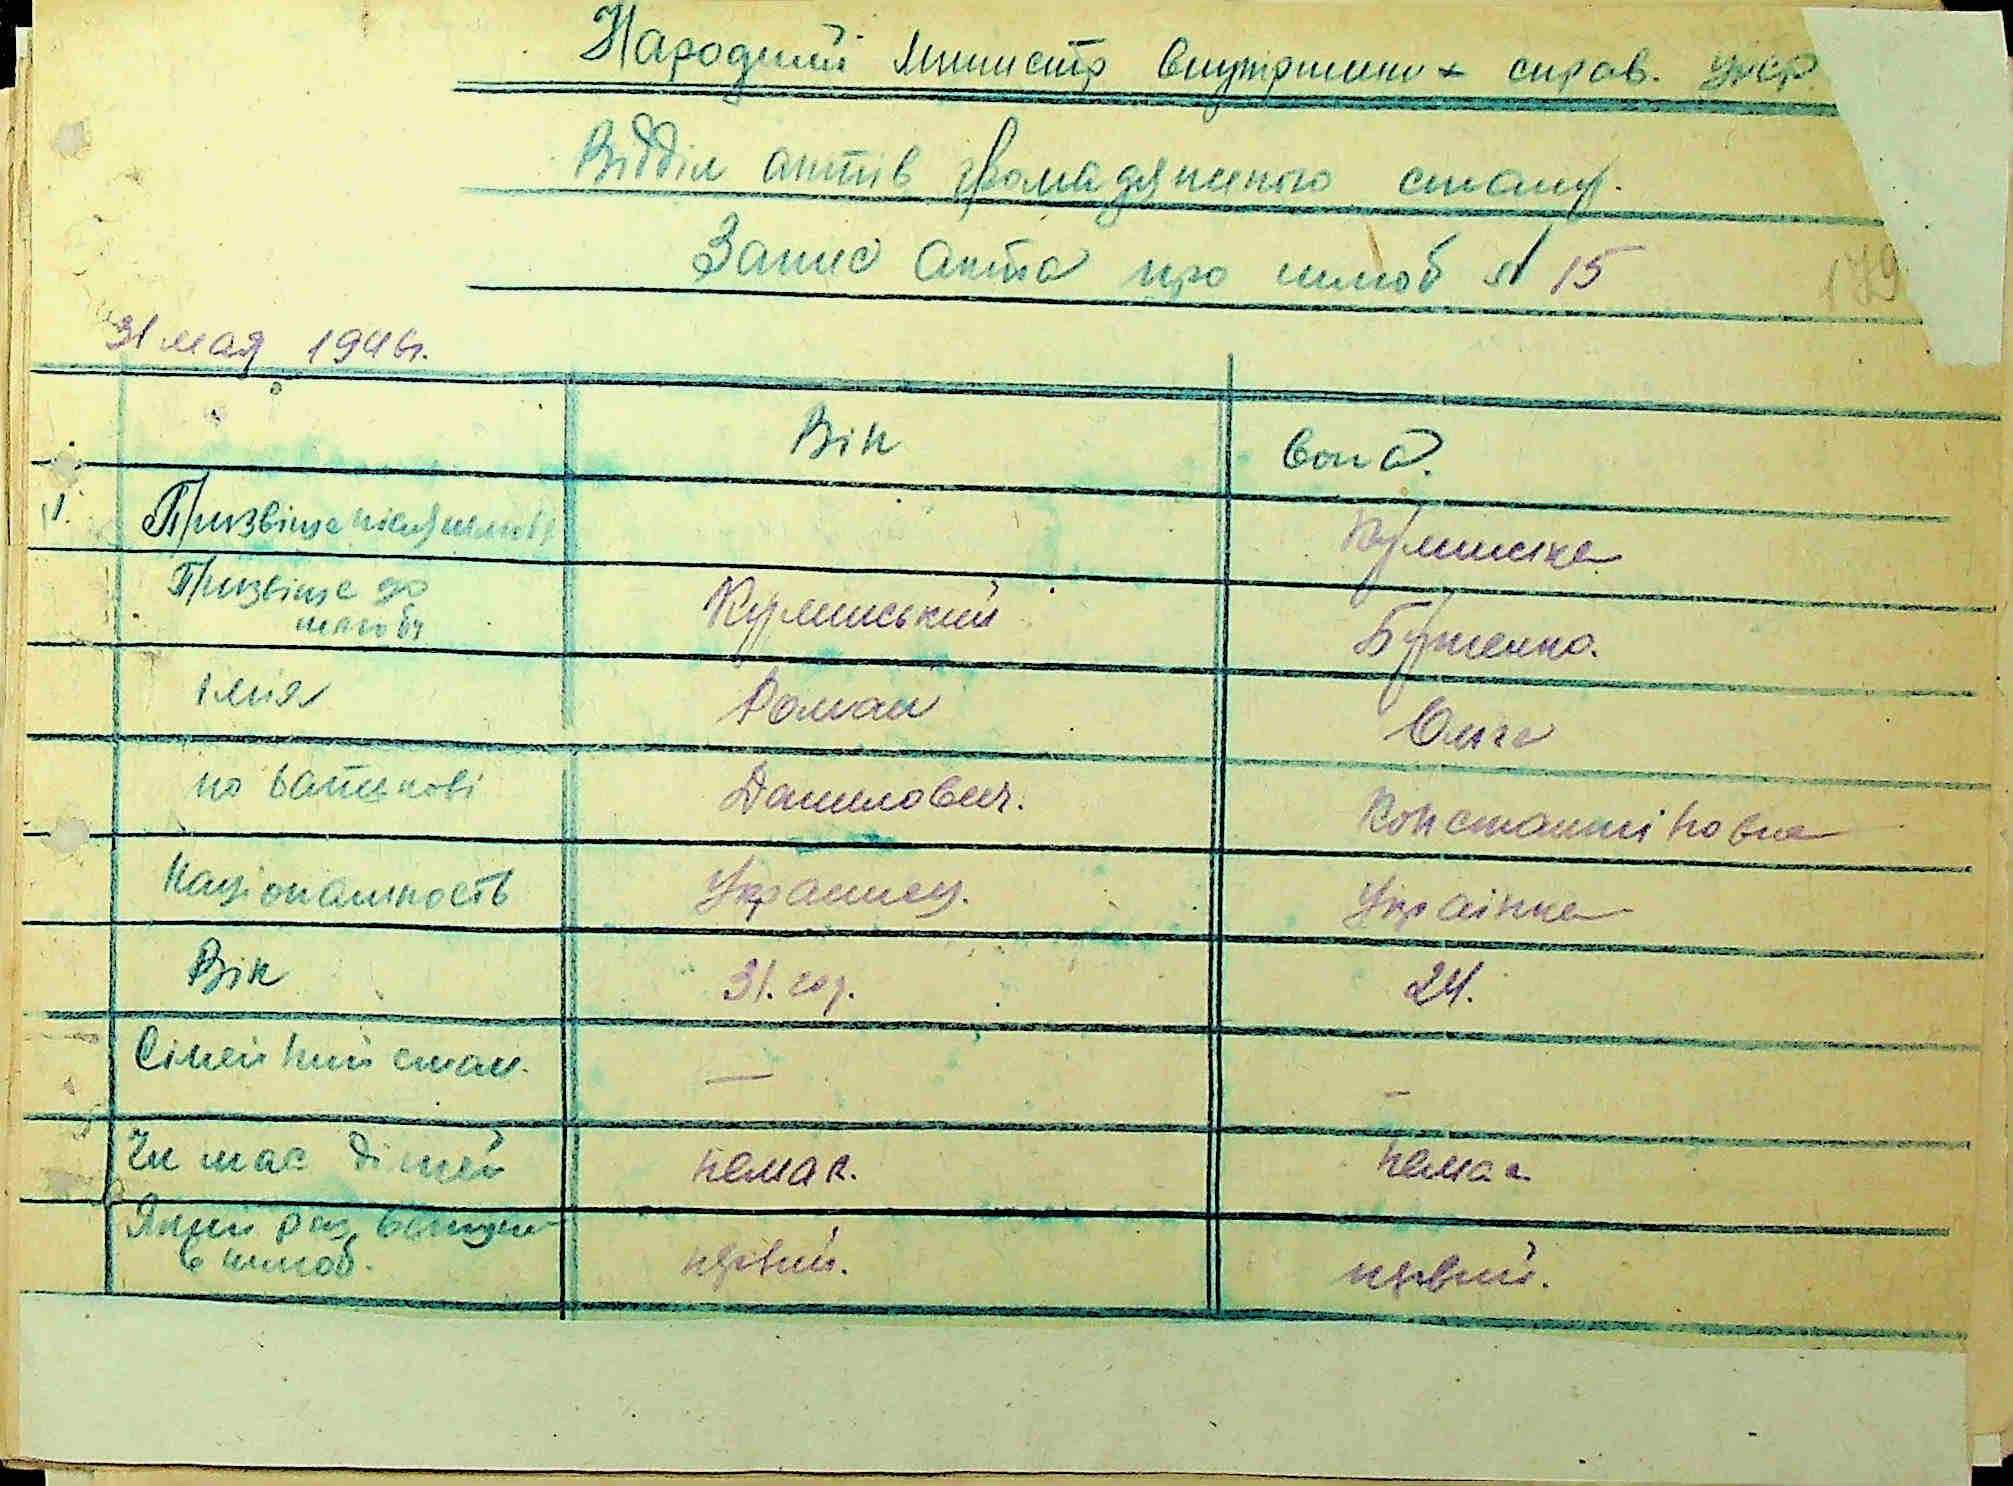 Народний министр внутришних справ. Укр.
Відділ актів громадянського стану.
Запис акта про шлюб № 15
179
31 мая 1946 г.
Він Вона.
1. Призвіще після шлюбу Кулинська
Призвіще до шлюбу Кулинський Бушенко.
імья Роман Ольга
по батькові Данилович. Константіновна
Національность Украинец. Українка
Вік 31. год. 24.
Сімейний стан. — —
Чи має дітей немає. немає
Який раз вступає в шлюб. первий. первий.